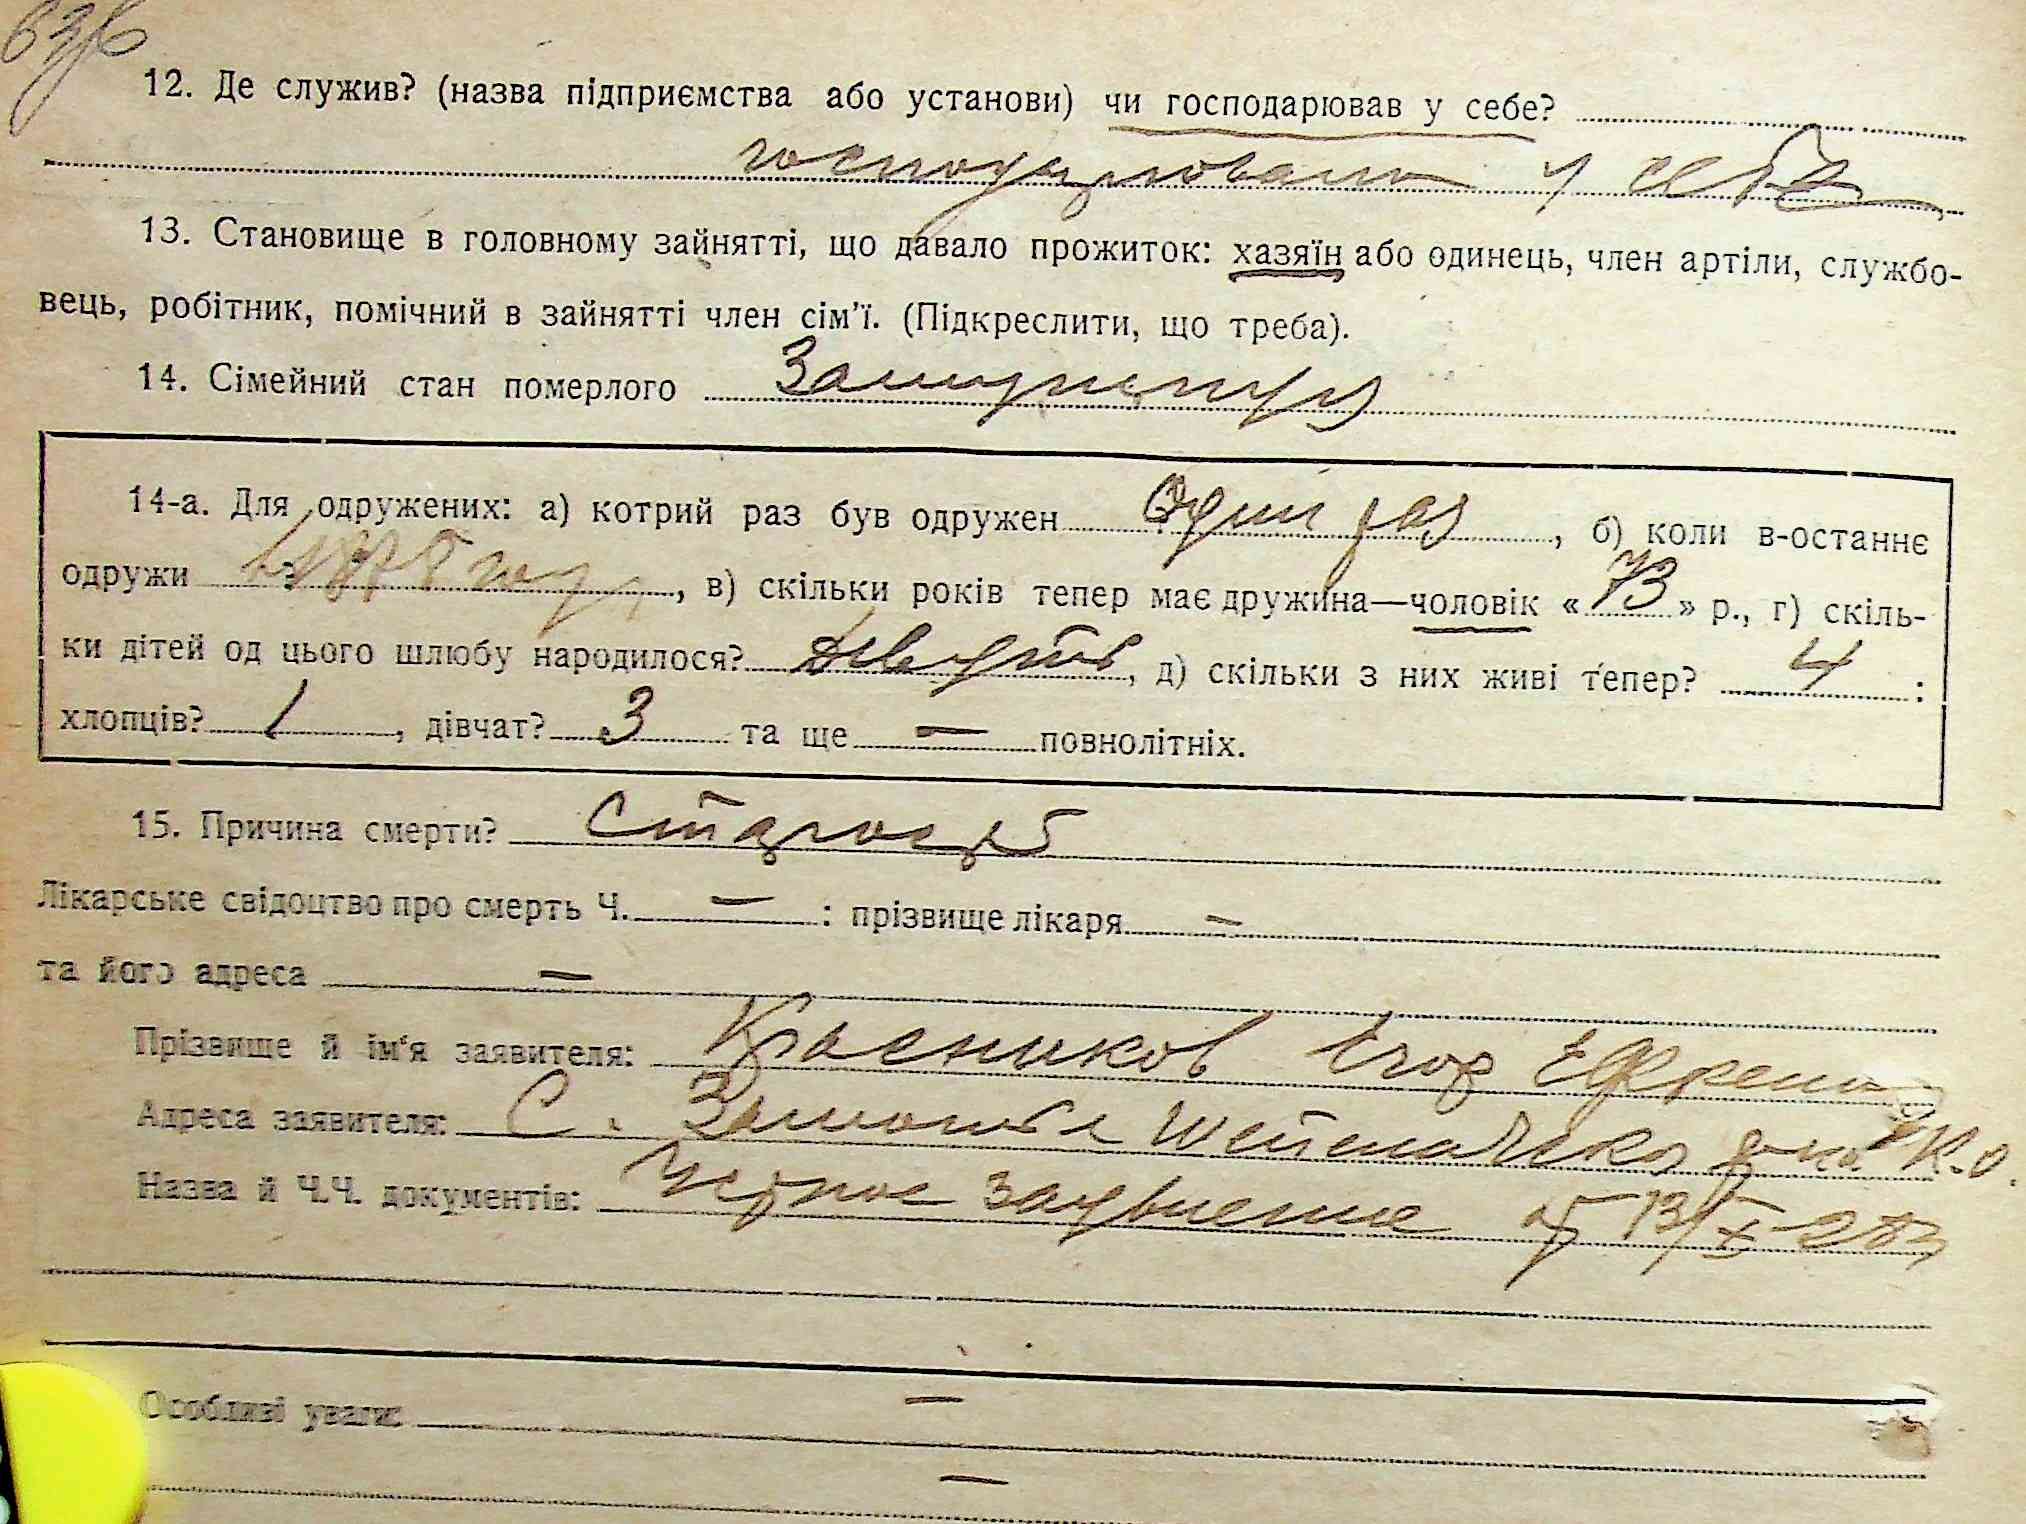 12. Де служив? (назва підприємства або установи) чи господарював у себе?
господарювала у себе
13. Становище в головному зайнятті, що давало прожиток: хазяїн або одинець, член артіли, службо-
вець, робітник, помічний в зайнятті член сім’ї. (Підкреслити, що треба).
14. Сімейний стан померлого Замужем
14-а. Для одружених: а) котрий раз був одружен Один раз, б) коли в-останнє
одружи году, в) скільки років тепер має дружина—чоловік «73» р., г) скіль-
ки дітей од цього шлюбу народилося? , д) скільки з них живі тепер? 4 :
хлопців? 1, дівчат? 3 та ще — повнолітніх.
15. Причина смерти? Старость
Лікарське свідоцтво про смерть Ч. — : прізвище лікаря —
та його адреса —
Прізвище й ім‘я заявителя: Красников Егор
Адреса заявителя: С. К.О.
Назва й Ч.Ч. документів: Устное заявление от 13/X-28
Особливі уваги: —
—